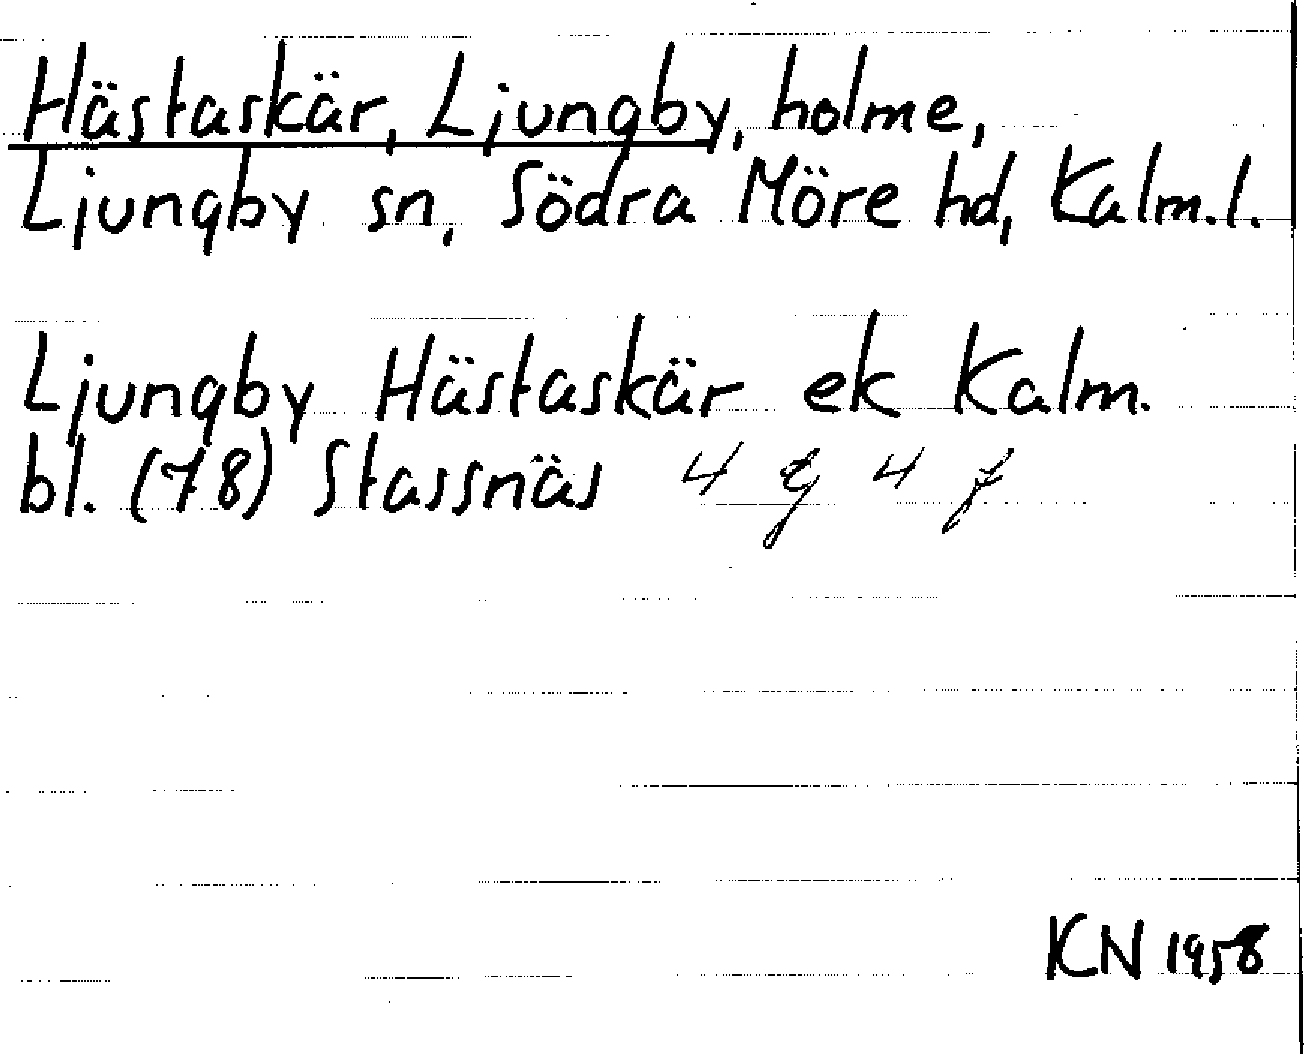 Hästaskär, Ljungby, holme,
Ljungby sn, Södra Möre hd, Kalm.l.
Ljungby Hästaskär ek Kalm.
bl. (78) Stassnäs 4 g 4 f
KN 1958